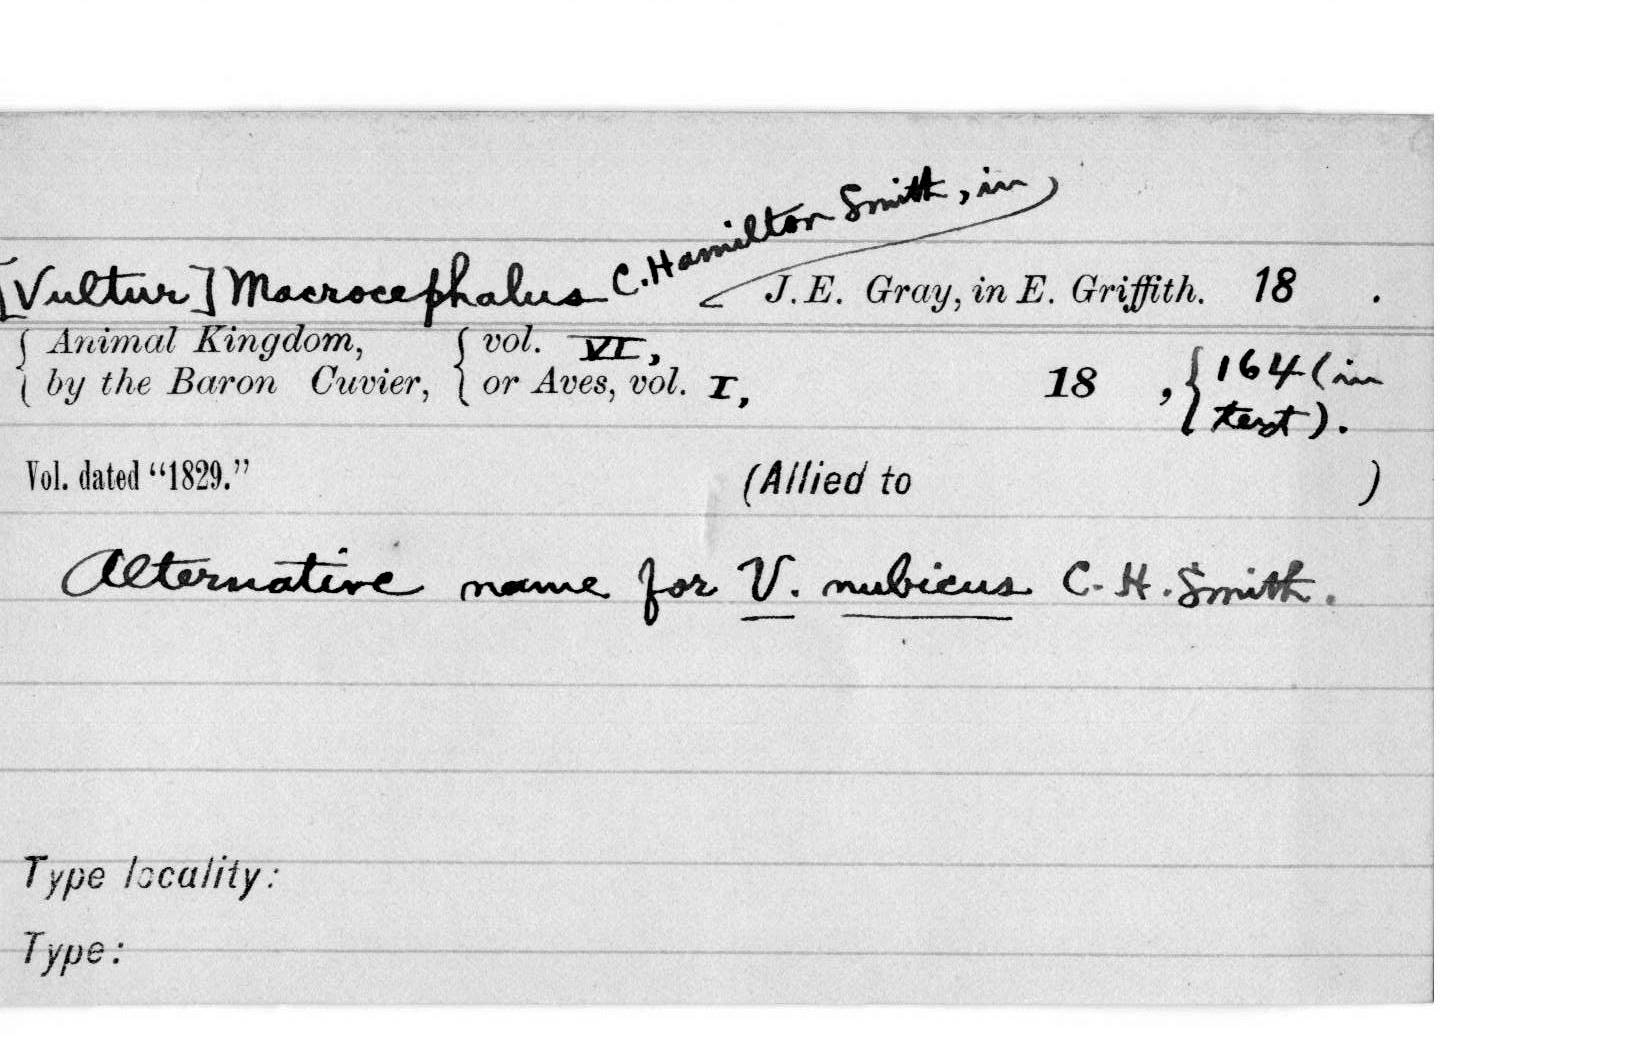 [Vultur] Macrocephalus C. Hamilton Smith, in J.E. Gray, in E. Griffith. 18 .
Animal Kingdom, vol. VI,
by the Baron Cuvier, or Aves, vol. I, 18 , 164 (in
text).
Vol. dated "1829." (Allied to )
Alternative name for V. nubicus C. H. Smith.
Type locality:
Type: